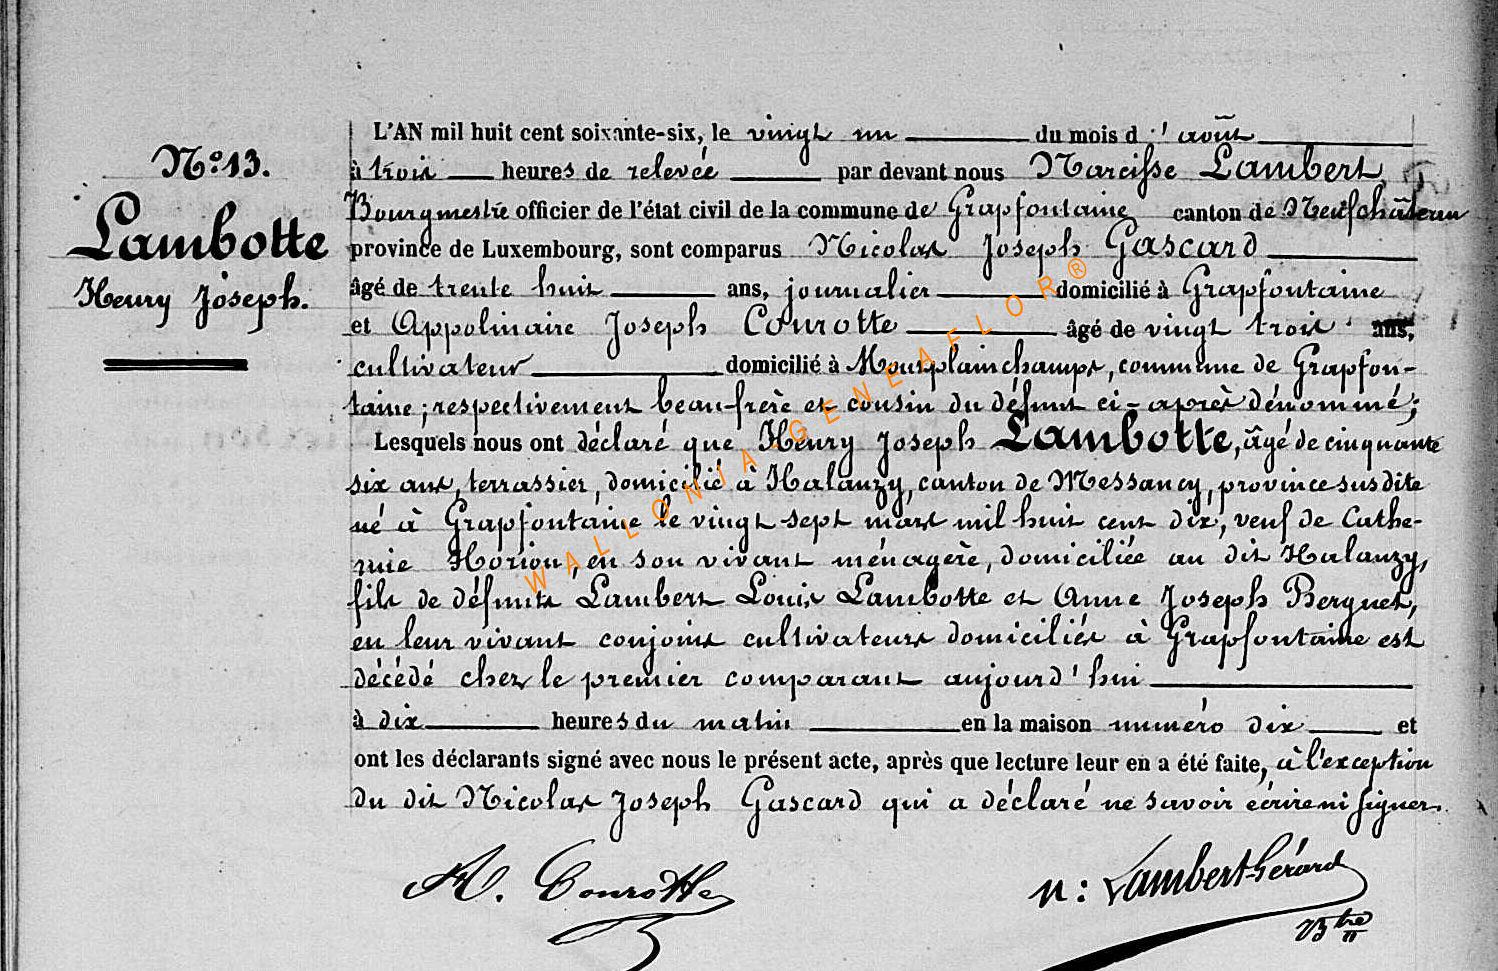 N.° 13.
Lambotte
Henry Joseph.
L'AN mil huit cent soixante-six, le vingt un du mois d'août
à trois heures de relevée par devant nous Narcisse Lambert,
Bourgmestre officier de l'état civil de la commune de Grapfontaine canton de Neufchâteau
province de Luxembourg, sont comparus Nicolas Joseph Gascard
âgé de trente huit ans, journalier domicilié à Grapfontaine
et Appolinaire Joseph Courotte âgé de vingt trois ans,
cultivateur domicilié à Montplainchamps, commune de Grapfon-
taine; respectivement beau-frère et cousin du défunt ci-après dénommé;
Lesquels nous ont déclaré que Henry Joseph Lambotte, âgé de cinquante
six ans, terrassier, domicilié à Halanzy, canton de Messancy, province susdite
né à Grapfontaine le vingt sept mars mil huit cent dix, veuf de Cathe-
rine Horion, en son vivant ménagère, domiciliée au dit Halanzy,
fils de défunts Lambert Louis Lambotte et Anne Joseph Berquet,
en leur vivant conjoints cultivateurs domiciliés à Grapfontaine est
décédé chez le premier comparant aujourd'hui
à dix heures du matin en la maison numéro dix et
ont les déclarants signé avec nous le présent acte, après que lecture leur en a été faite, à l'exception
du dit Nicolas Joseph Gascard qui a déclaré ne savoir écrire ni signer.
A. Courotte
N: Lambert-Gérard
Btre
WALLONIA-GENEAFLOR®